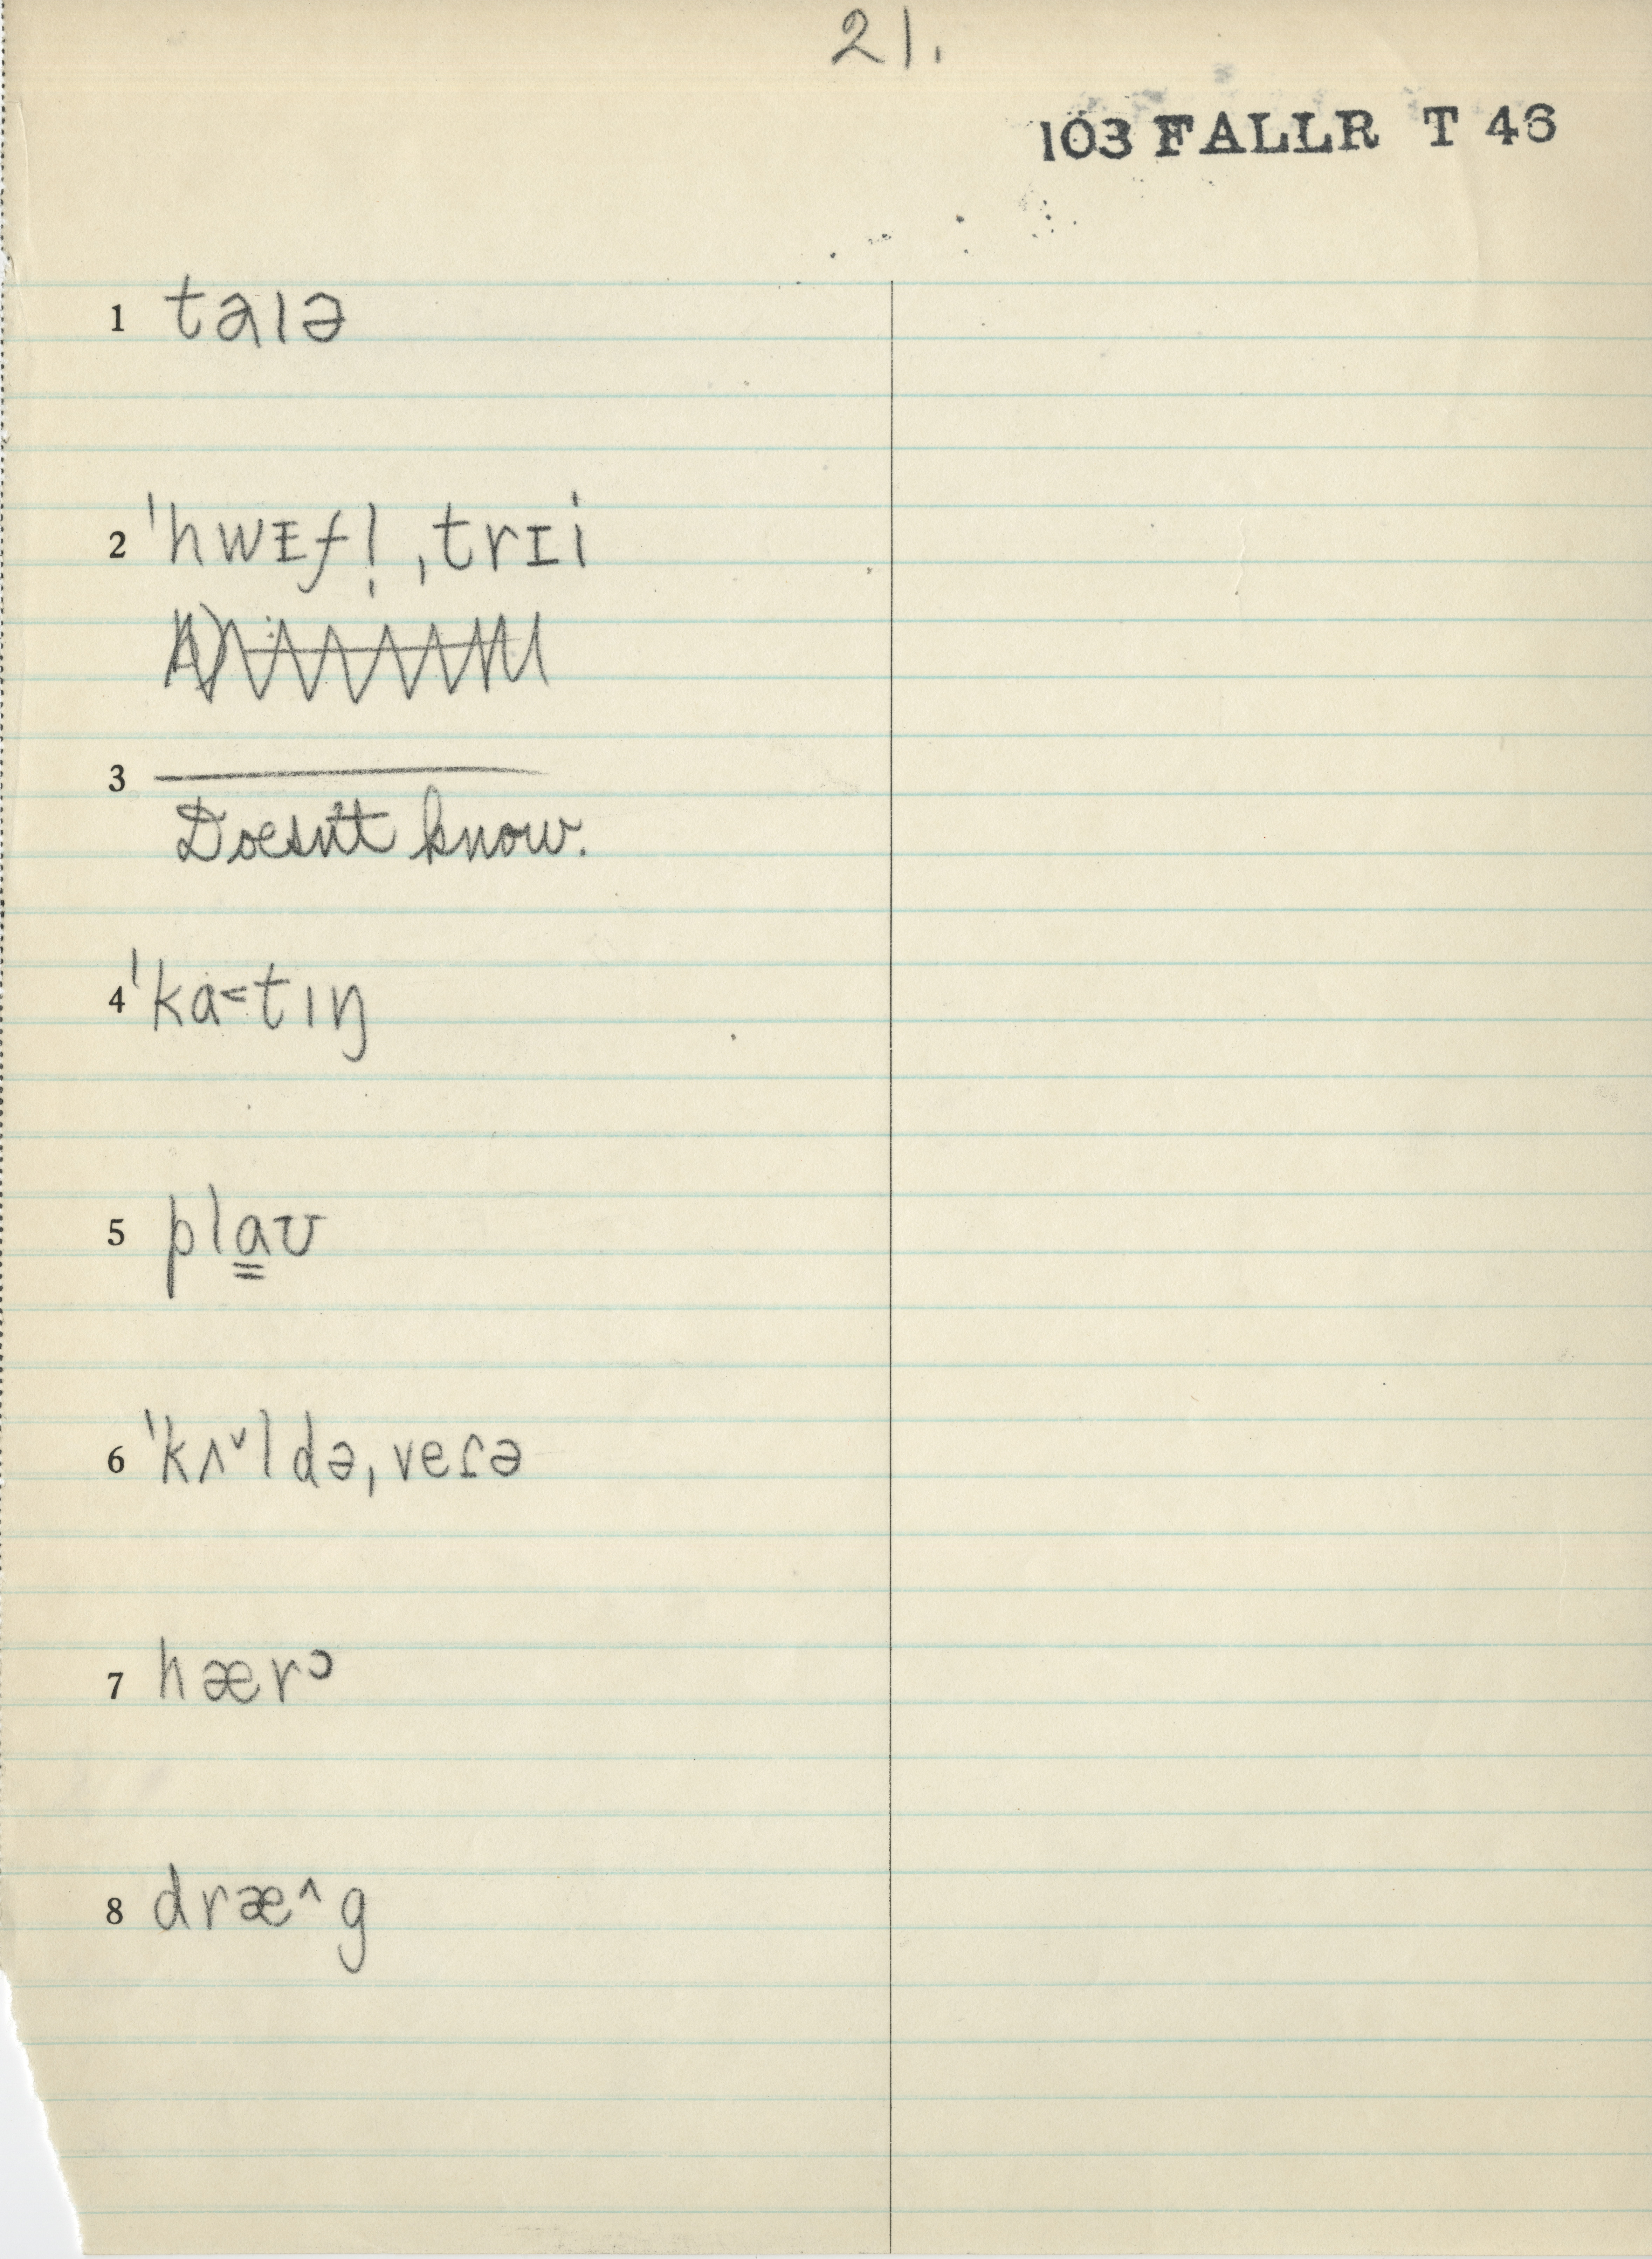 21.
103 FALLR T 46
1 taɪə
2 ˈhwɪfl̩ˌtrɪi
3 ———
Doesn't know.
4 ˈka˂tɪŋ
5 pla̳ʊ
6 ˈkʌˇldəˌveɾə
7 hærᵓ
8 dræ^g